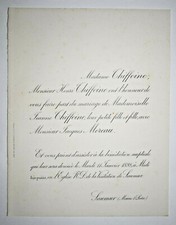 Madame Chiffoine,
Monsieur Henri Chiffoine ont l'honneur de
vous faire part du mariage de Mademoiselle
Jeanne Chiffoine, leur petite fille et fille, avec
Monsieur Jacques Moreau.
Et vous prient d'assister à la bénédiction nuptiale
qui leur sera donnée le Mardi Janvier à Midi
en l'Eglise N.D. de la Visitation de Saumur.
Saumur (Maine & Loire)